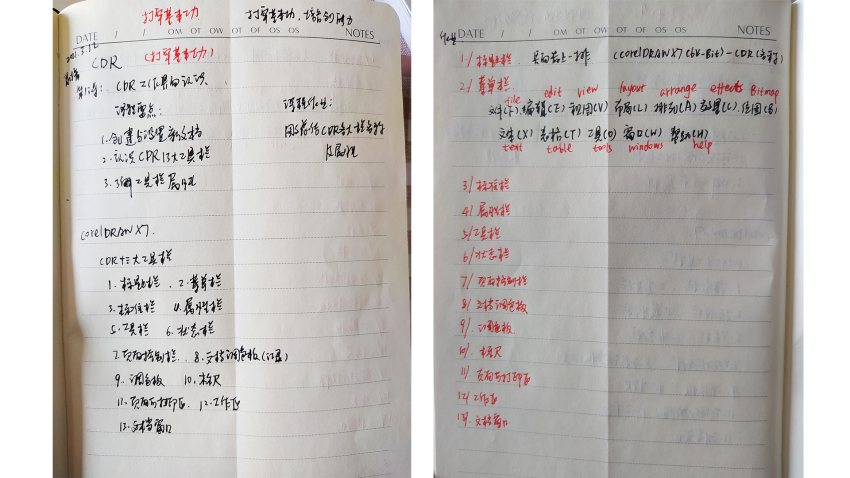 打牢基本功
打牢基本功,培养创新力
DATE / / OM OT OW OT OF OS OS NOTES
2021.3.12
CDR (打牢基本功)
第1节: CDR工作界面认识
课程要点: 课程作业:
1.创建与设置新文档
2.认识CDR13大工具栏
3.了解工具栏属性
及属性
CorelDRAW X7.
CDR十三大工具栏
1.标题栏. 2.菜单栏
3.标准栏 4.属性栏
5.工具栏 6.状态栏
7.页面控制栏. 8.文档调色板(记录)
9.调色板 10.标尺
11.页面可打印区. 12.工作区
13.文档窗口
DATE / / OM OT OW OT OF OS OS NOTES
作业
1/ 标题栏. 界面最上一排 (CorelDRAW X7 (64-Bit) - CDR(文档)
2/ 菜单栏
file edit view layout arrange effects Bitmap
文件(F).编辑(E)视图(V) 布局(L) 排列(A) 效果(C).位图(B)
文本(X) 表格(T) 工具(O) 窗口(W) 帮助(H)
text table tools windows help
3/ 标准栏
4/ 属性栏
5/ 工具栏
6/ 状态栏
7/ 页面控制栏
8/ 文档调色板
9/ 调色板
10/ 标尺
11/. 页面可打印区
12/ 工作区
13/. 文档窗口